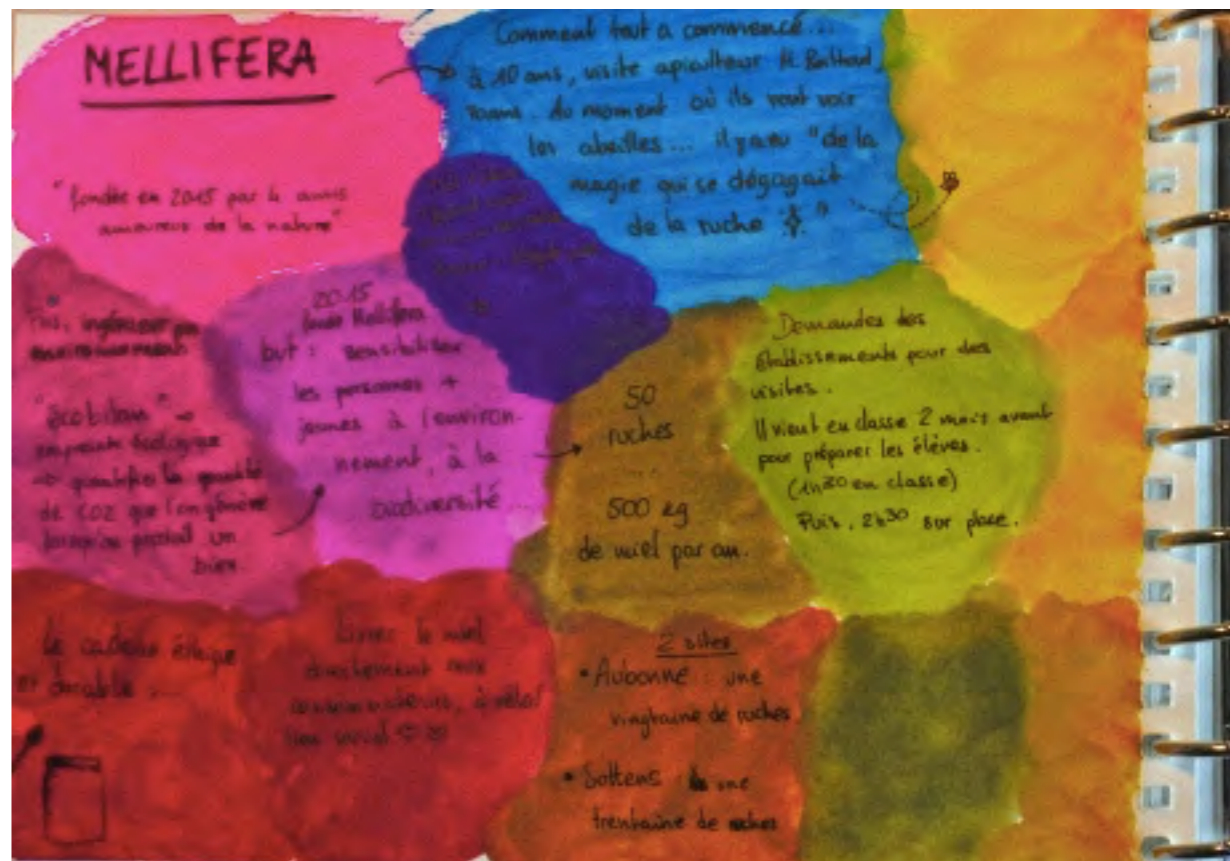 MELLIFERA
"fondée en 2015 par 4 amis
amoureux de la nature"
Comment tout a commencé...
à 10 ans, visite apiculteur M.
du moment où ils vont voir
les abeilles... il y a eu "de la
magie qui se dégageait
de la ruche "
Puis, ingénieur en
environnement
"écobilan"
empreinte écologique
quantifier la quantité
de CO2 que l'on génère
lorsqu'on produit un
bien
2015
fonde Mellifera
but : sensibiliser
les personnes +
jeunes à l'environ-
nement, à la
biodiversité...
50
ruches
...
500 kg
de miel par an.
Demandes des
établissements pour des
visites.
Il vient en classe 2 mois avant
pour préparer les élèves.
(1h30 en classe)
Puis, 2h30 sur place.
Le cadeau éthique
et durable...
Livrer le miel
directement aux
consommateurs, à vélo!
lien social
2 sites
• Aubonne : une
vingtaine de ruches
• Sottens : une
trentaine de ruches